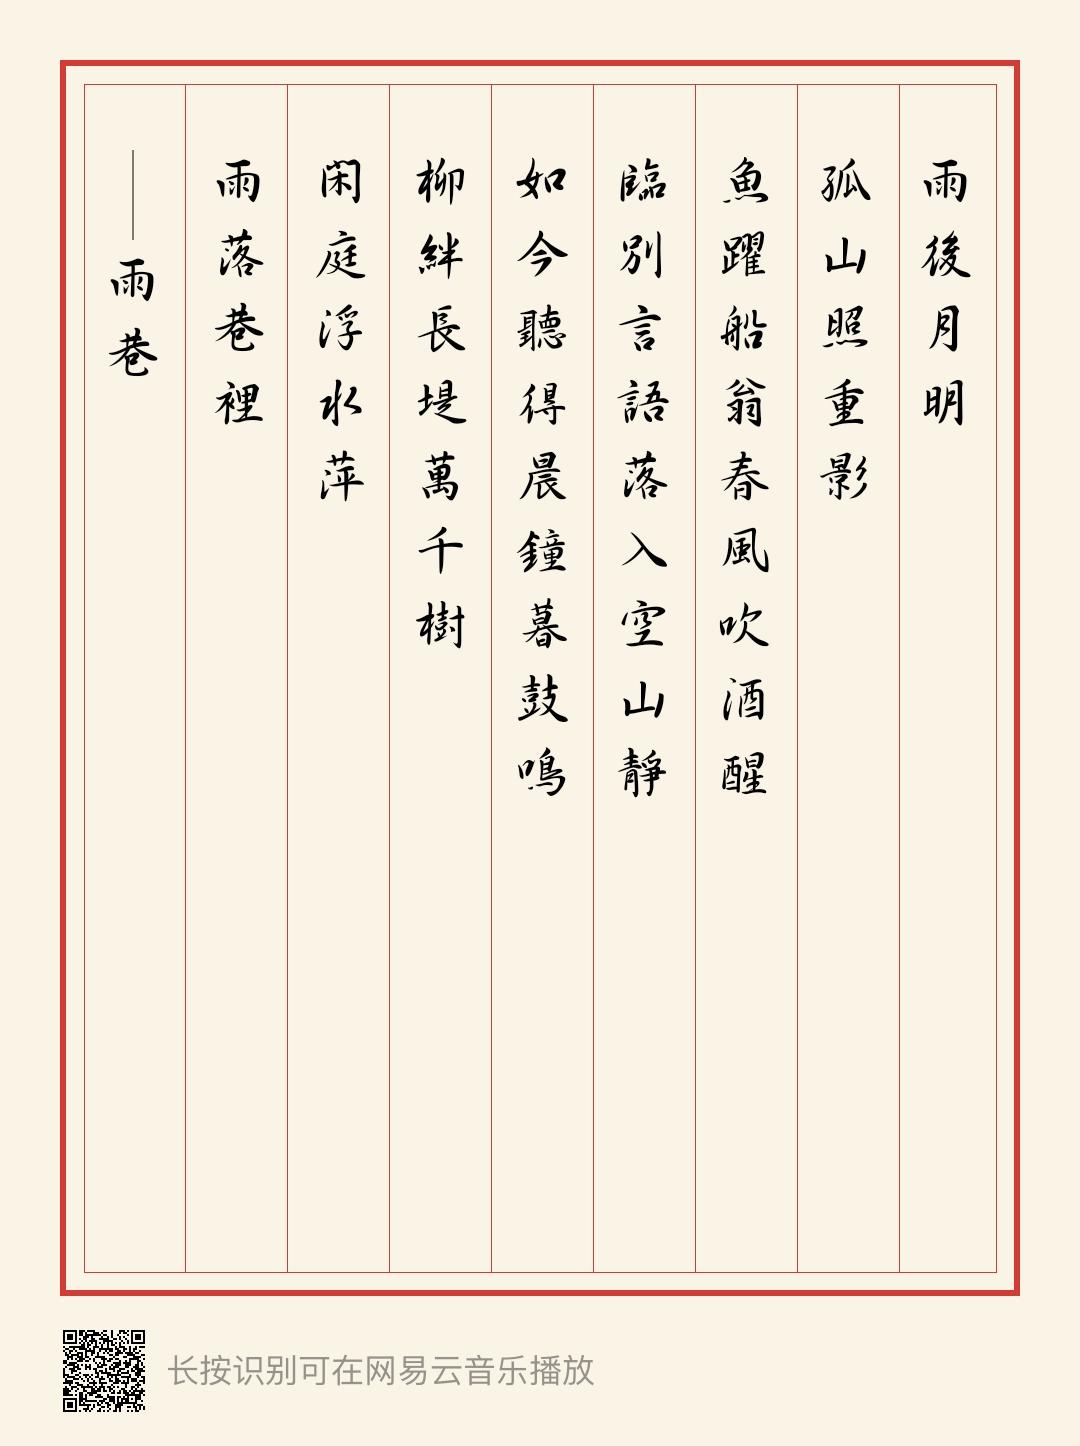 雨後月明
孤山照重影
魚躍船翁春風吹酒醒
臨別言語落入空山靜
如今聽得晨鐘暮鼓鳴
柳絆長堤萬千樹
閑庭浮水萍
雨落巷裡
——雨巷
长按识别可在网易云音乐播放